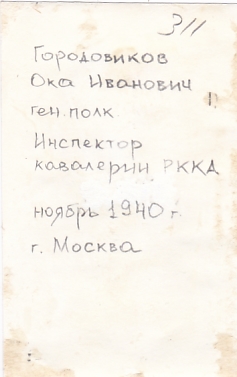 311
Городовиков
Ока Иванович
ген. полк
Инспектор
кавалерии РККА
ноябрь 1940 г.
г. Москва